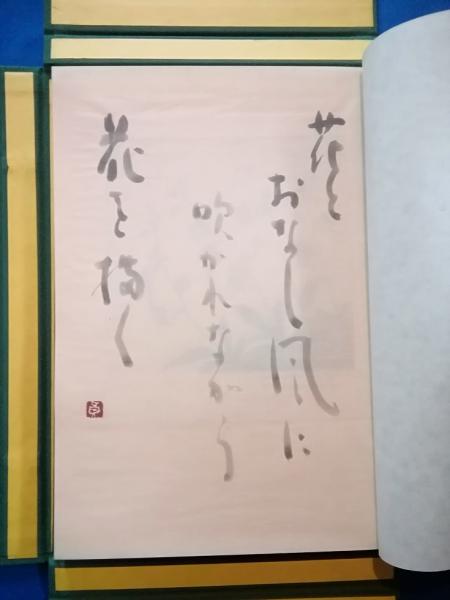 花と
おなし風に
吹かれながら
花を描く